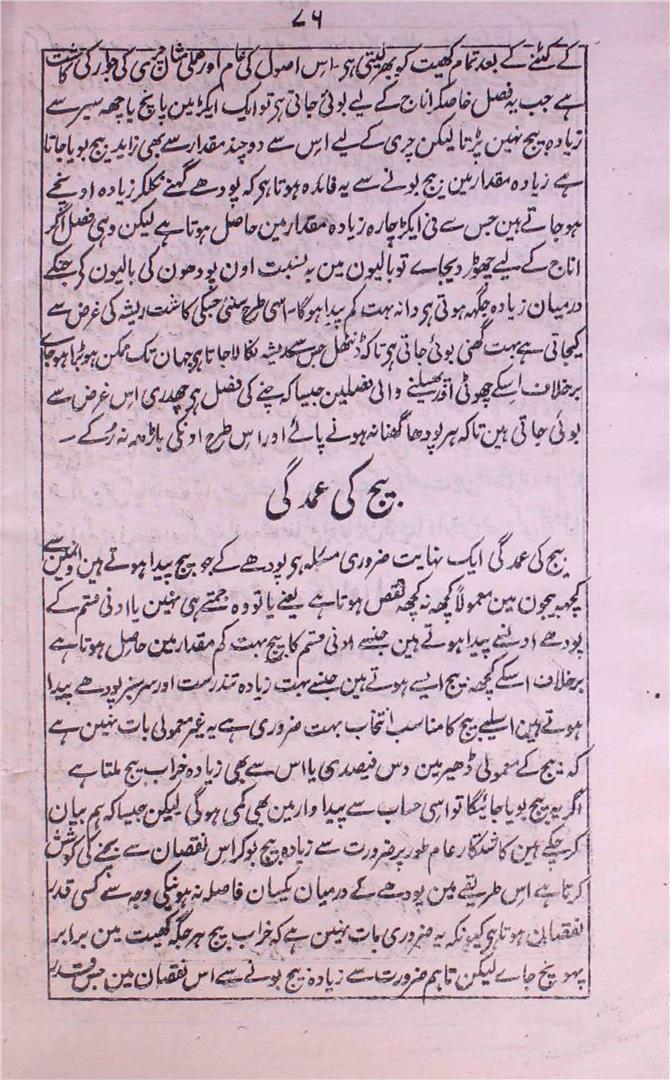 ۷۶
کے کٹنے کے بعد تمام کھیت کو بھر لیتی ہی۔ اس اصول کی عام اور عملی مثال چری کی جوار کی کاشت
ہے جب یہ فصل خاصکر اناج کے لیے بوئی جاتی ہی تو ایک ایکڑ مین پانچ یا چھہ سیر سے
زیادہ بیج نہین پڑتا لیکن چری کے لیے اس سے دو چند مقدار سے بھی زاید بیج بویا جاتا
ہے زیادہ مقدار مین بیج بونے سے یہ فائدہ ہوتا ہی کہ پودھے گہنے نکلکر زیادہ اونچے
ہو جاتے ہین جس سے فی ایکڑ چارہ زیادہ مقدار مین حاصل ہوتا ہے لیکن وہی فصل اگر
اناج کے لیے چھوڑ دیجاے تو بالیون مین بہ نسبت اون پودھون کی بالیون کی جنکے
درمیان زیادہ جگہہ ہوتی ہی دانہ بہت کم پیدا ہوگا۔ اسی طرح سنئی جسکی کاشت ریشہ کی غرض سے
کیجاتی ہے بہت گھنی بوئی جاتی ہی تاکہ ڈنٹھل جس سے ریشہ نکالا جاتا ہی جہان تک ممکن ہو بڑا ہو جاے
برخلاف اسکے چھوٹی اور پھیلنے والی فصلین جیسا کہ چنے کی فصل ہی چھدری اس غرض سے
بوئی جاتی ہین تاکہ ہر پودھا گھنا نہ ہونے پائے اور اس طرح اونکی باڑھ نہ رُکے ۔
بیج کی عمدگی
بیج کی عمدگی ایک نہایت ضروری مسئلہ ہی پودھے کے جو بیج پیدا ہوتے ہین اونمین سے
کچھہ بیجون مین معمولاً کچھہ نہ کچھہ نقص ہوتا ہے یعنے یا تو وہ جمتے ہی نہین یا ادنی قسم کے
پودھے اونسے پیدا ہوتے ہین جنسے ادنی قسم کا بیج بہت کم مقدار مین حاصل ہوتا ہے
برخلاف اسکے کچھہ بیج ایسے ہوتے ہین جنسے بہت زیادہ تندرست اور سرسبز پودھے پیدا
ہوتے ہین اسلیے بیج کا مناسب انتخاب بہت ضروری ہے یہ غیر معمولی بات نہین ہے
کہ بیج کے معمولی ڈھیر مین دس فیصدی یا اس سے بھی زیادہ خراب بیج ملتا ہے
اگر یہ بیج بویا جائیگا تو اسی حساب سے پیداوار مین بھی کمی ہوگی لیکن جیسا کہ ہم بیان
کر چکے ہین کاشتکار عام طور پر ضرورت سے زیادہ بیج بو کر اس نقصان سے بچنے کی کوشش
کرتا ہے اس طریقے مین پودھے کے درمیان یکسان فاصلہ نہ ہونیکی وجہ سے کسی قدر
نقصان ہوتا ہی کیونکہ یہ ضروری بات نہین ہے کہ خراب بیج ہر جگہ کھیت مین برابر
پہونچ جاے لیکن تاہم ضرورت سے زیادہ بیج بونے سے اس نقصان مین جس قدر